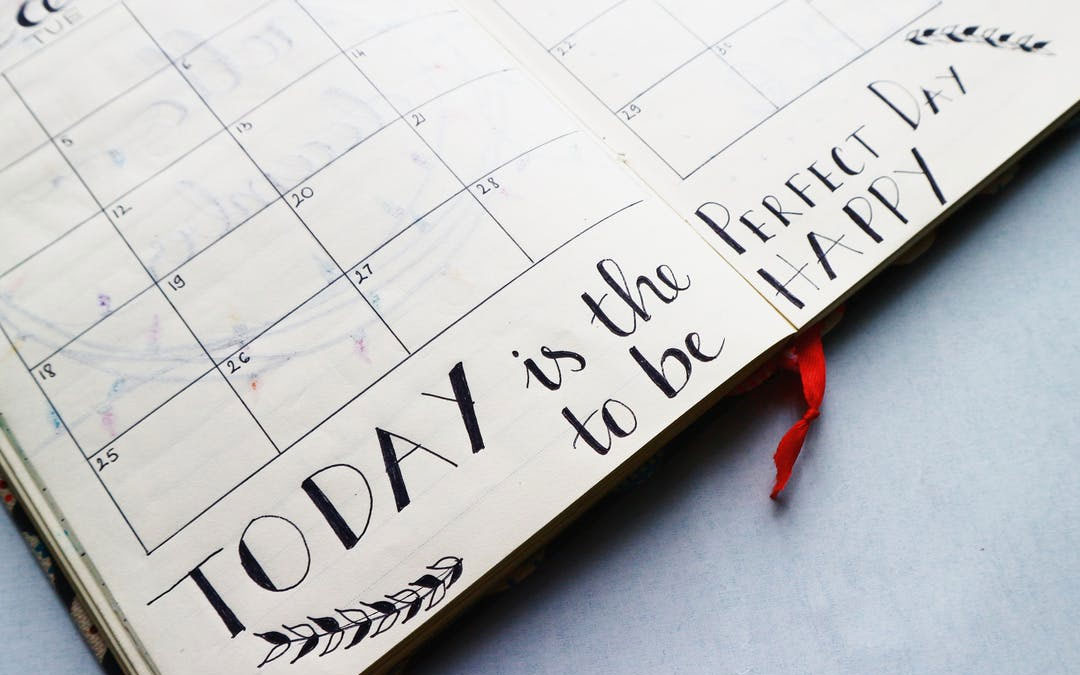 TUE
5 6
12 13 14
18 19 20 21 22
25 26 27 28 29 30
TODAY is the PERFECT DAY
to be HAPPY